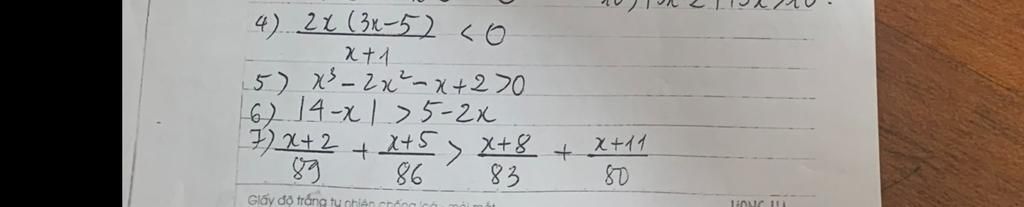 4) 2x(3x-5)/x+1 < 0
5) x³ - 2x² - x + 2 > 0
6) |4-x| > 5-2x
7) x+2/89 + x+5/86 > x+8/83 + x+11/80
Giấy độ trắng tự nhiên